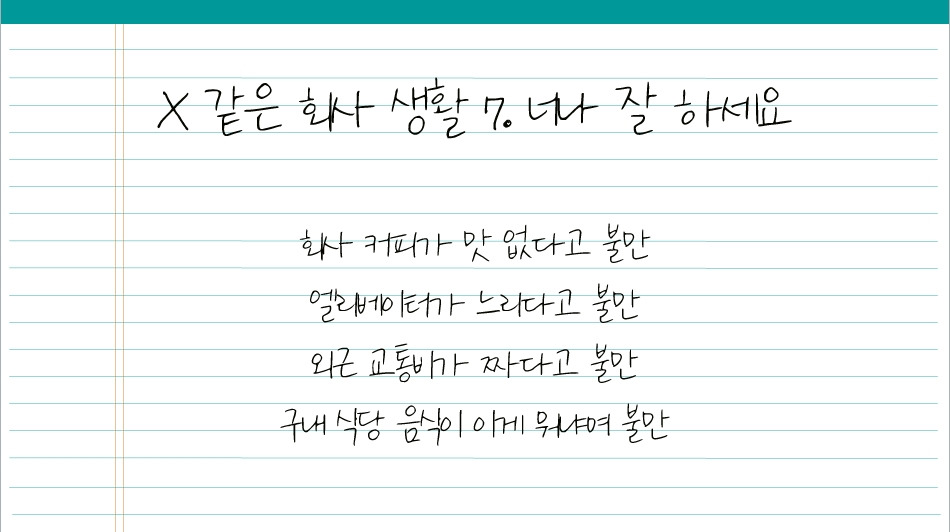 X 같은 회사 생활 7. 너나 잘 하세요
회사 커피가 맛 없다고 불만
엘리베이터가 느리다고 불만
외근 교통비가 짜다고 불만
구내 식당 음식이 이게 뭐냐며 불만